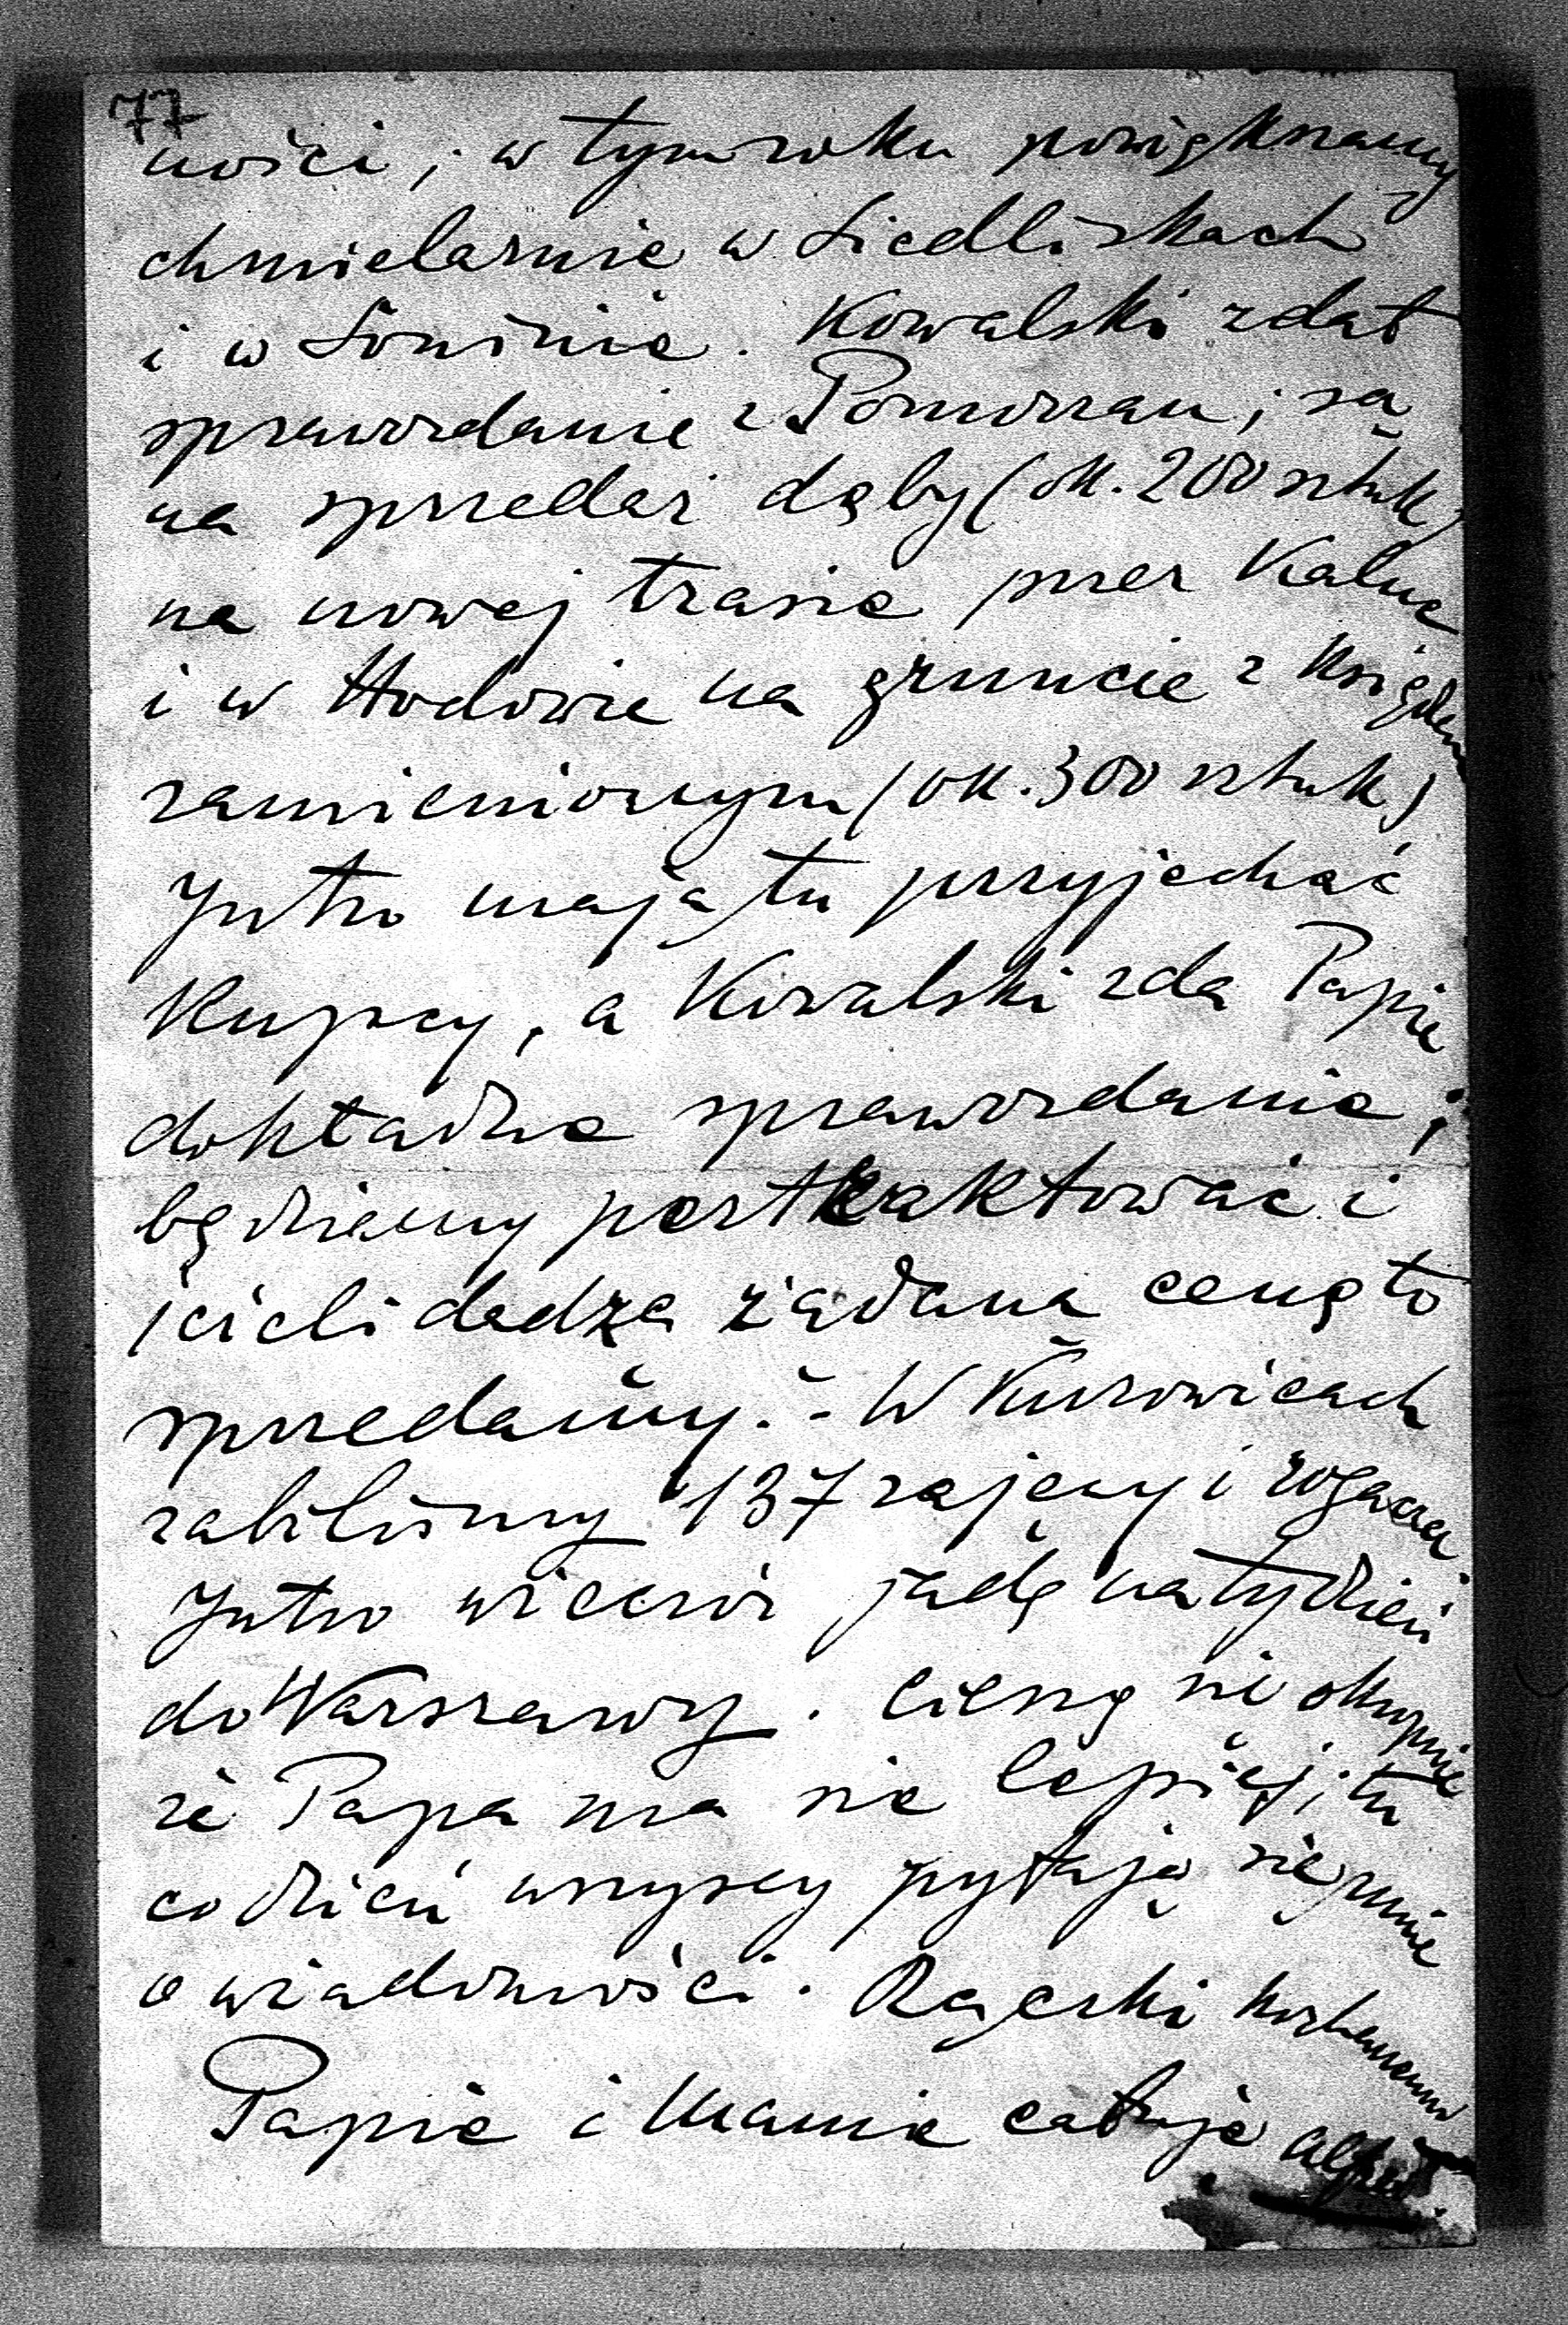 77
ności; w tym roku powiększamy
chmielarnie w Siedliskach
i w Soninie. Kowalski zdał
sprawozdanie z Pomorzan; są
na sprzedaż dęby (ok. 200 sztuk)
na nowej trasie przez Kalne
i w Hodowie na gruncie z księdzem
zamienionym (ok. 300 sztuk)
Jutro mają tu przyjechać
kupcy, a Kowalski zda Papie
dokładne sprawozdanie;
będziemy pertraktować i
jeżeli dadzą żądaną cenę to
sprzedamy. - W Kurowicach
zabiliśmy 137 zajęcy i rogacza
Jutro wieczór jadę na tydzień
do Warszawy. Cieszę się okropnie
że Papa ma się lepiej; tu
codzień wszyscy pytają się mnie
o wiadomości. Rączki kochanemu
Papie i Mamie całuję Alfred